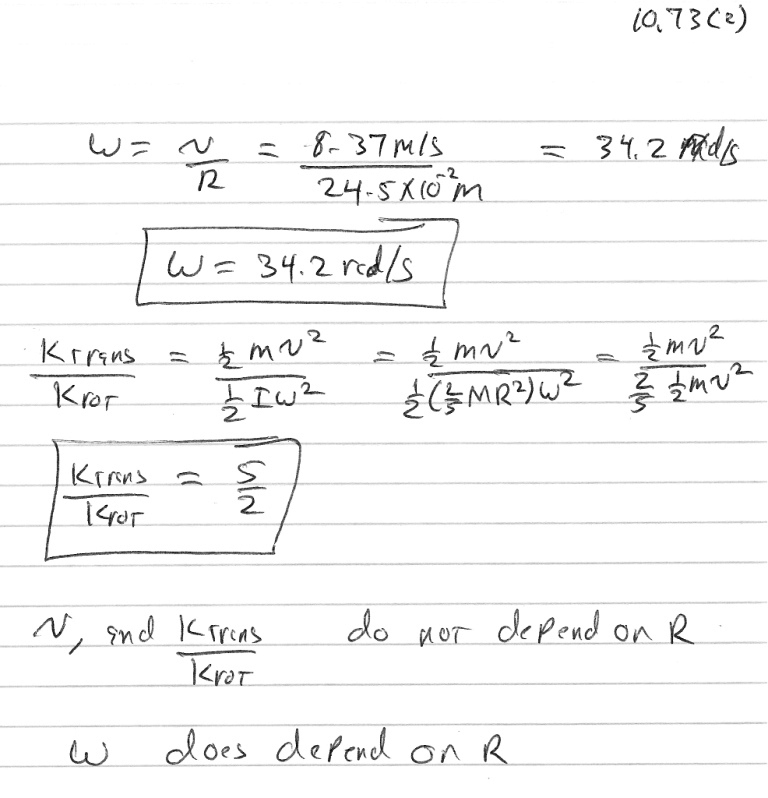 10.73(2)
ω = v/R = 8.37 m/s / 24.5×10⁻² m = 34.2 rad/s
ω = 34.2 rad/s
KTrans/KroT = ½ mv² / ½ Iω² = ½ mv² / ½(⅖ MR²)ω² = ½ mv² / ⅖ ½ mv²
KTrans/KroT = 5/2
v, and KTrans/KroT do not depend on R
ω does depend on R